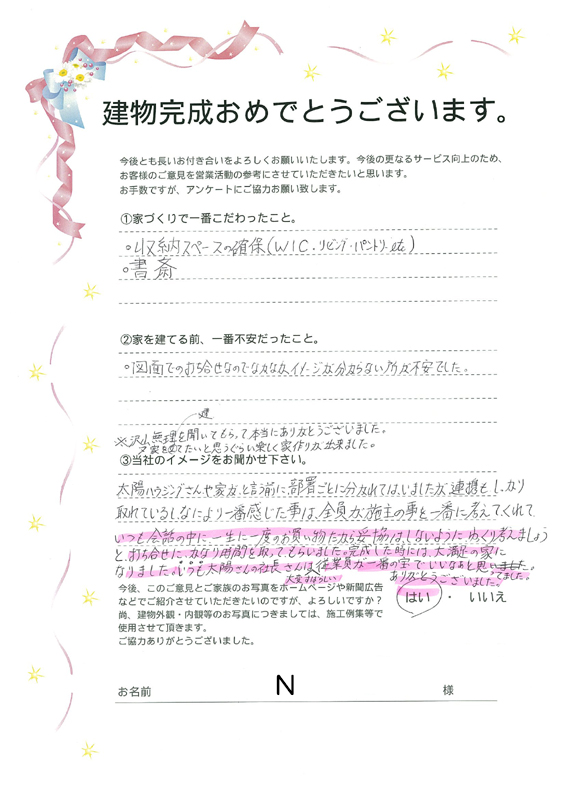 建物完成おめでとうございます。
今後とも長いお付き合いをよろしくお願いいたします。今後の更なるサービス向上のため、
お客様のご意見を営業活動の参考にさせていただきたいと思います。
お手数ですが、アンケートにご協力お願い致します。
①家づくりで一番こだわったこと。
○収納スペースの確保(WIC.リビング・パントリー.etc)
○書斎
②家を建てる前、一番不安だったこと。
○図面での打ち合せなのでなかなかイメージが分からない所が不安でした。
※沢山無理を聞いてもらって本当にありがとうございました。
又家を建てたいと思うぐらい楽しく家作りが出来ました。
③当社のイメージをお聞かせ下さい。
太陽ハウジングさんや家が、と言う前に、部署ごとに分かれてはいましたが連携もしっかり
取れているし、なにより一番感じた事は、全員が施主の事を一番に考えてくれて
いつも会話の中に一生に一度のお買い物だから妥協はしないようにゆっくり考えましょう
と、打ち合せに、かなり時間を取ってもらいました。完成した時には、大満足の家に
なりました。いつも太陽さんの社長さんは従業員が一番の宝でいいなぁと思いました。
大変すばらしい
ありがとうございました。
今後、このご意見とご家族のお写真をホームページや新聞広告
などでご紹介させていただきたいのですが、よろしいですか？
はい ・ いいえ
尚、建物外観・内観等のお写真につきましては、施工例集等で
使用させて頂きます。
ご協力ありがとうございました。
お名前 N 様